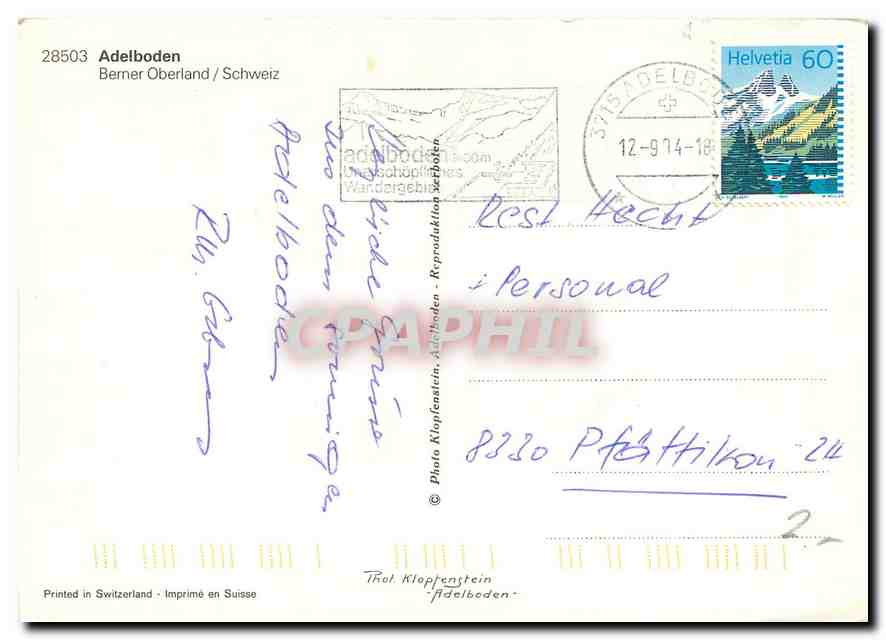 28503 Adelboden
Berner Oberland / Schweiz
Helvetia 60
3715 ADELBODEN
12-9.94-18
adelboden.com
Unerschöpfliches
Wandergebiet
Herzliche Grüsse
aus dem sonnigen
Adelboden
Rest. Hecht
Personal
8330 Pfäffikon ZH
2.-
© Photo Klopfenstein, Adelboden - Reproduktion verboten
CPAPHIL
Phot. Klopfenstein
-Adelboden-
Printed in Switzerland - Imprimé en Suisse